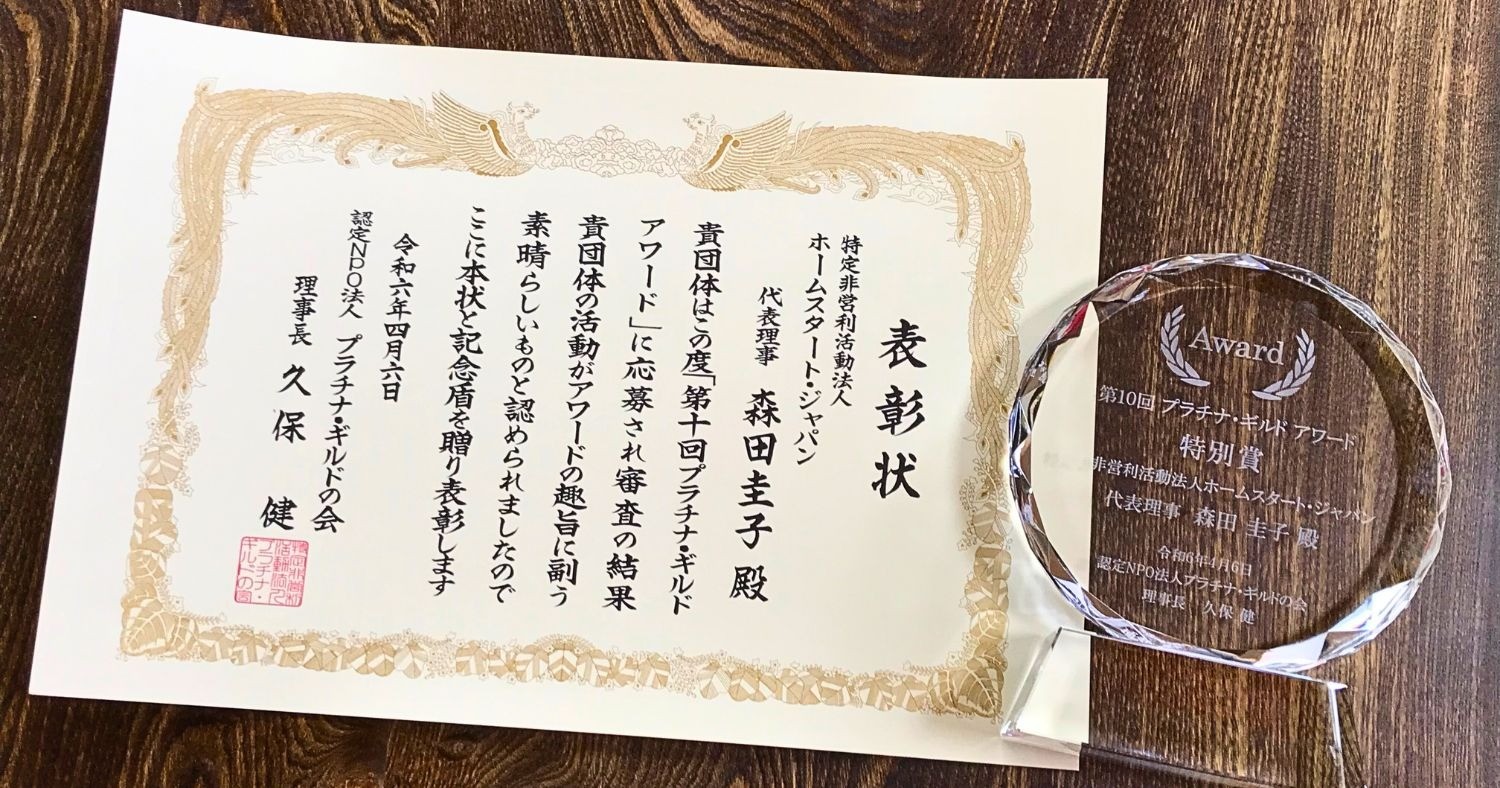 表彰状
特定非営利活動法人
ホームスタート・ジャパン
代表理事 森田圭子 殿
貴団体はこの度「第十回プラチナ・ギルド
アワード」に応募され審査の結果
貴団体の活動がアワードの趣旨に副う
素晴らしいものと認められましたので
ここに本状と記念盾を贈り表彰します
令和六年四月六日
認定NPO法人 プラチナ・ギルドの会
理事長 久保 健
Award
第10回 プラチナ・ギルド アワード
特別賞
非営利活動法人ホームスタート・ジャパン
代表理事 森田 圭子 殿
令和6年4月6日
認定NPO法人プラチナ・ギルドの会
理事長 久保 健